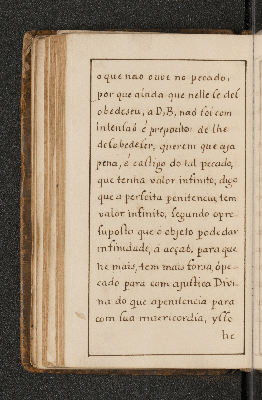 o que nao ouve no pecado,
por que ainda que nelle se del
obedeseu, a D,s, naõ foi com
intensaõ é prepozito de lhe
desobedeser, querem que aja
pena, é castigo do tal pecado,
que tenha valor infinito, digo
que a perfeita penitencia, tem
valor infinito, segundo opre
suposto que o objeto pode dar
infinidade, a acçaõ, para que
he mais, tem mais forsa, ope-
cado para com ajustica Divi
na do que apenitencia para
com sua misericordia, y se
he